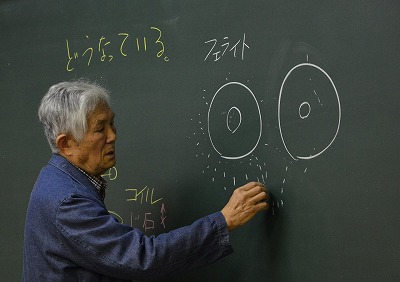 どうなっている。
フェライト
コイル